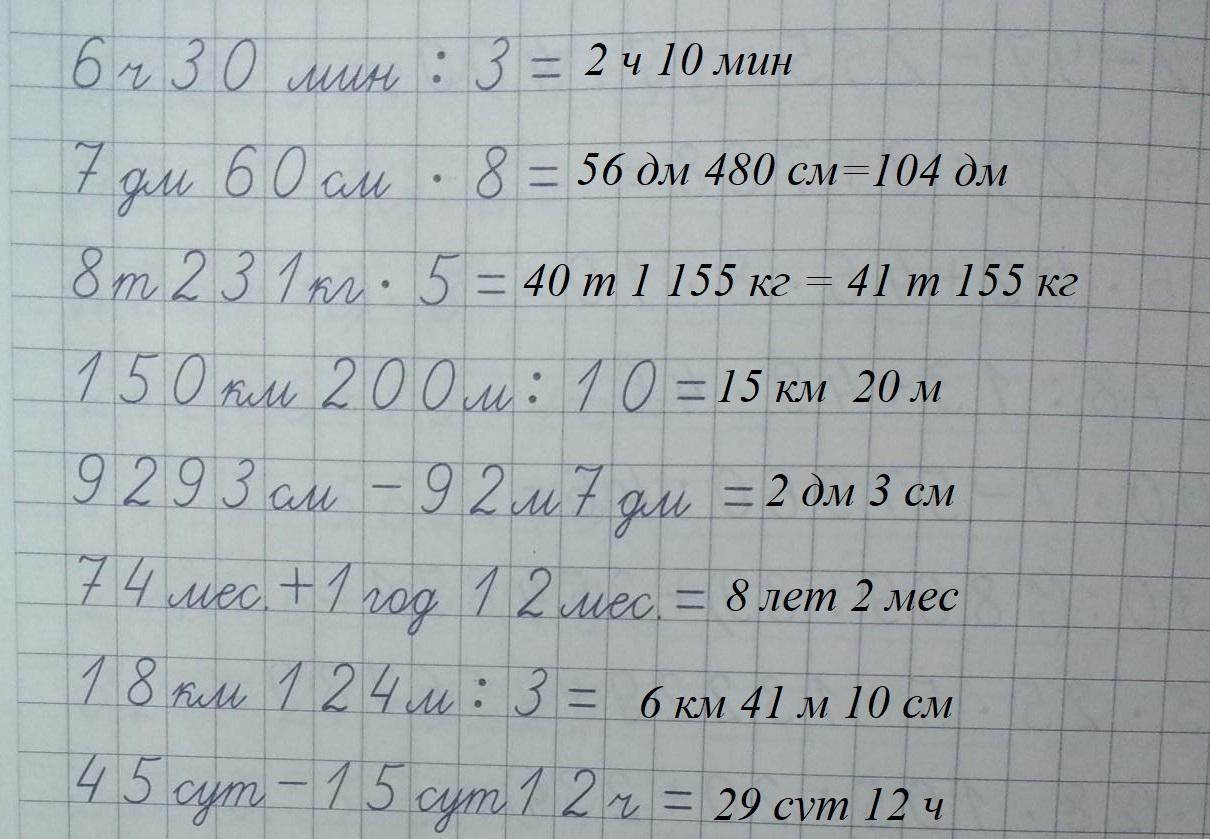 6 ч 30 мин : 3 = 2 ч 10 мин
7 дм 60 см · 8 = 56 дм 480 см=104 дм
8 т 231 кг · 5 = 40 т 1 155 кг = 41 т 155 кг
150 км 200 м : 10 = 15 км 20 м
9293 см - 92 м 7 дм = 2 дм 3 см
74 мес. + 1 год 12 мес. = 8 лет 2 мес
18 км 124 м : 3 = 6 км 41 м 10 см
45 сут - 15 сут 12 ч = 29 сут 12 ч